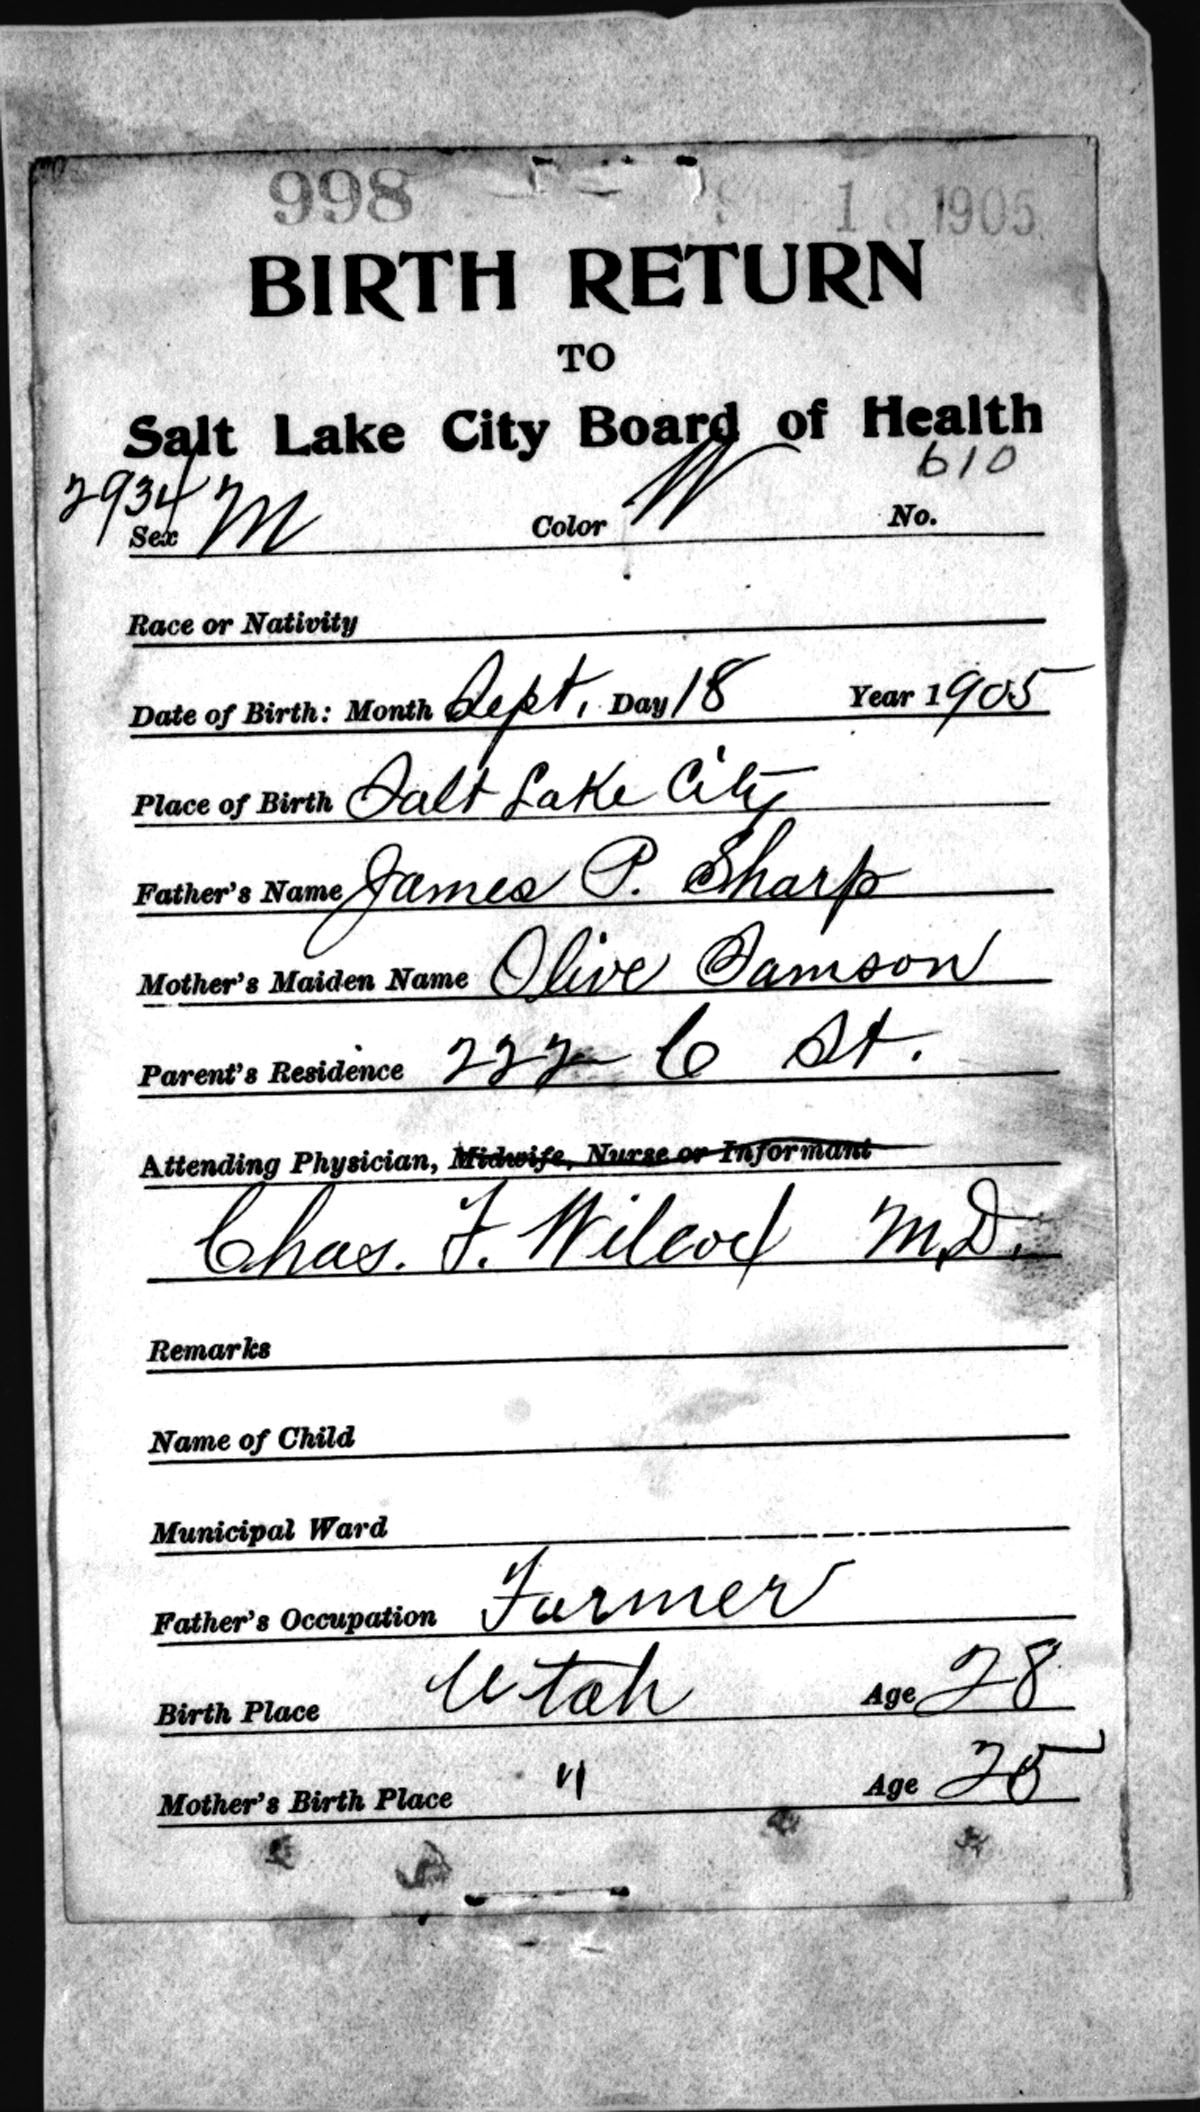 998 18 1905
BIRTH RETURN
TO
Salt Lake City Board of Health
610
2934
Sex M Color W No.
Race or Nativity
Date of Birth: Month Sept. Day 18 Year 1905
Place of Birth Salt Lake City
Father's Name James P. Sharp
Mother's Maiden Name Olive Samson
Parent's Residence 222 C St.
Attending Physician, Midwife, Nurse or Informant
Chas. F. Wilcox M.D.
Remarks
Name of Child
Municipal Ward
Father's Occupation Farmer
Birth Place Utah Age 28
Mother's Birth Place " Age 25